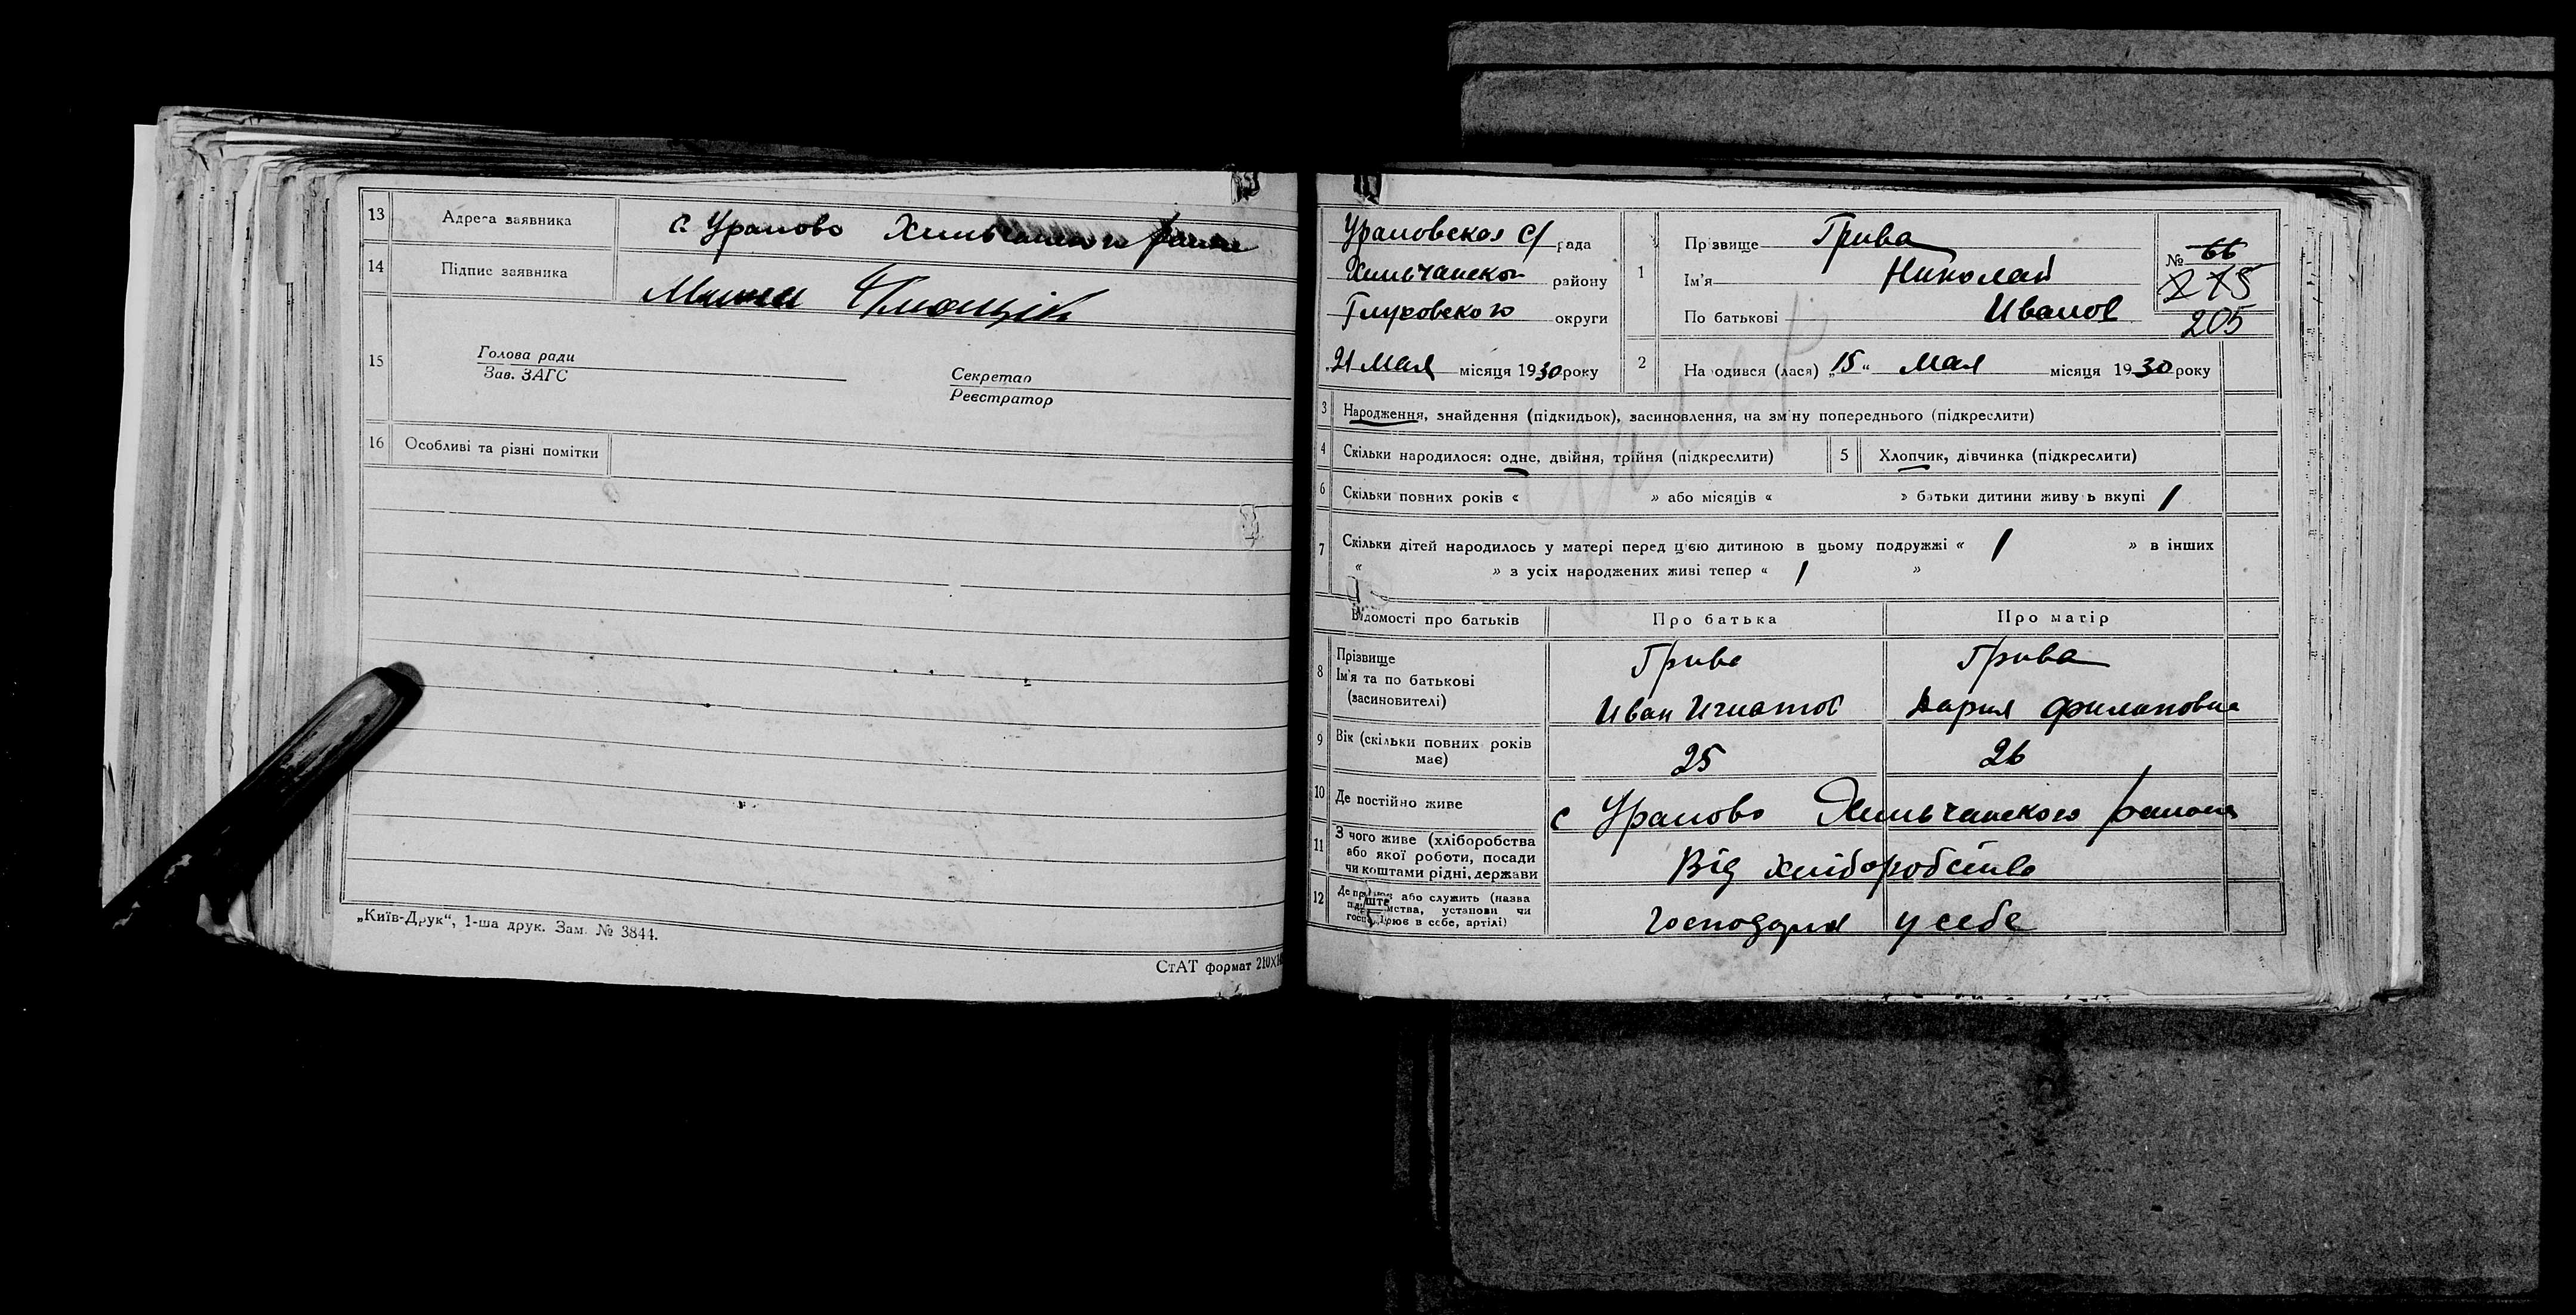 13 Адреса заявника с. Уралово Хильчанского района
14 Підпис заявника
15 Голова ради
Зав. ЗАГС
Секретар
Реєстратор
16 Особливі та різні помітки
„Київ-Друк“, 1-ша друк. Зам. № 3844.
СтАТ формат 210×1
Ураловская с/ рада
Хильчанског району
Глуховского округи
21 Мая місяця 1930 року
1 Прізвище Грива
Ім'я Николай
По батькові Иванов
№ 66
275
205
2 Народився (лася) „15“ Мая місяця 1930 року
3 Народження, знайдення (підкидьок), засиновлення, на зміну попереднього (підкреслити)
4 Скільки народилося: одне, двійня, трійня (підкреслити) 5 Хлопчик, дівчинка (підкреслити)
6 Скільки повних років « » або місяців « » батьки дитини живуть вкупі /
7 Скільки дітей народилось у матері перед цією дитиною в цьому подружжі « / » в інших
« » з усіх народжених живі тепер « / »
Відомості про батьків Про батька Про матір
8 Прізвище Ім'я та по батькові (засиновителі)
Грива Грива
Иван Игнатов Дария Филиповна
9 Вік (скільки повних років має) 25 26
10 Де постійно живе с Уралово Хильчанского района
11 З чого живе (хліборобства або якої роботи, посади чи коштами рідні, держави
Від хліборобства
12 Де працює або служить (назва підприємства, установи чи господарює в себе, артілі)
господаря у себе